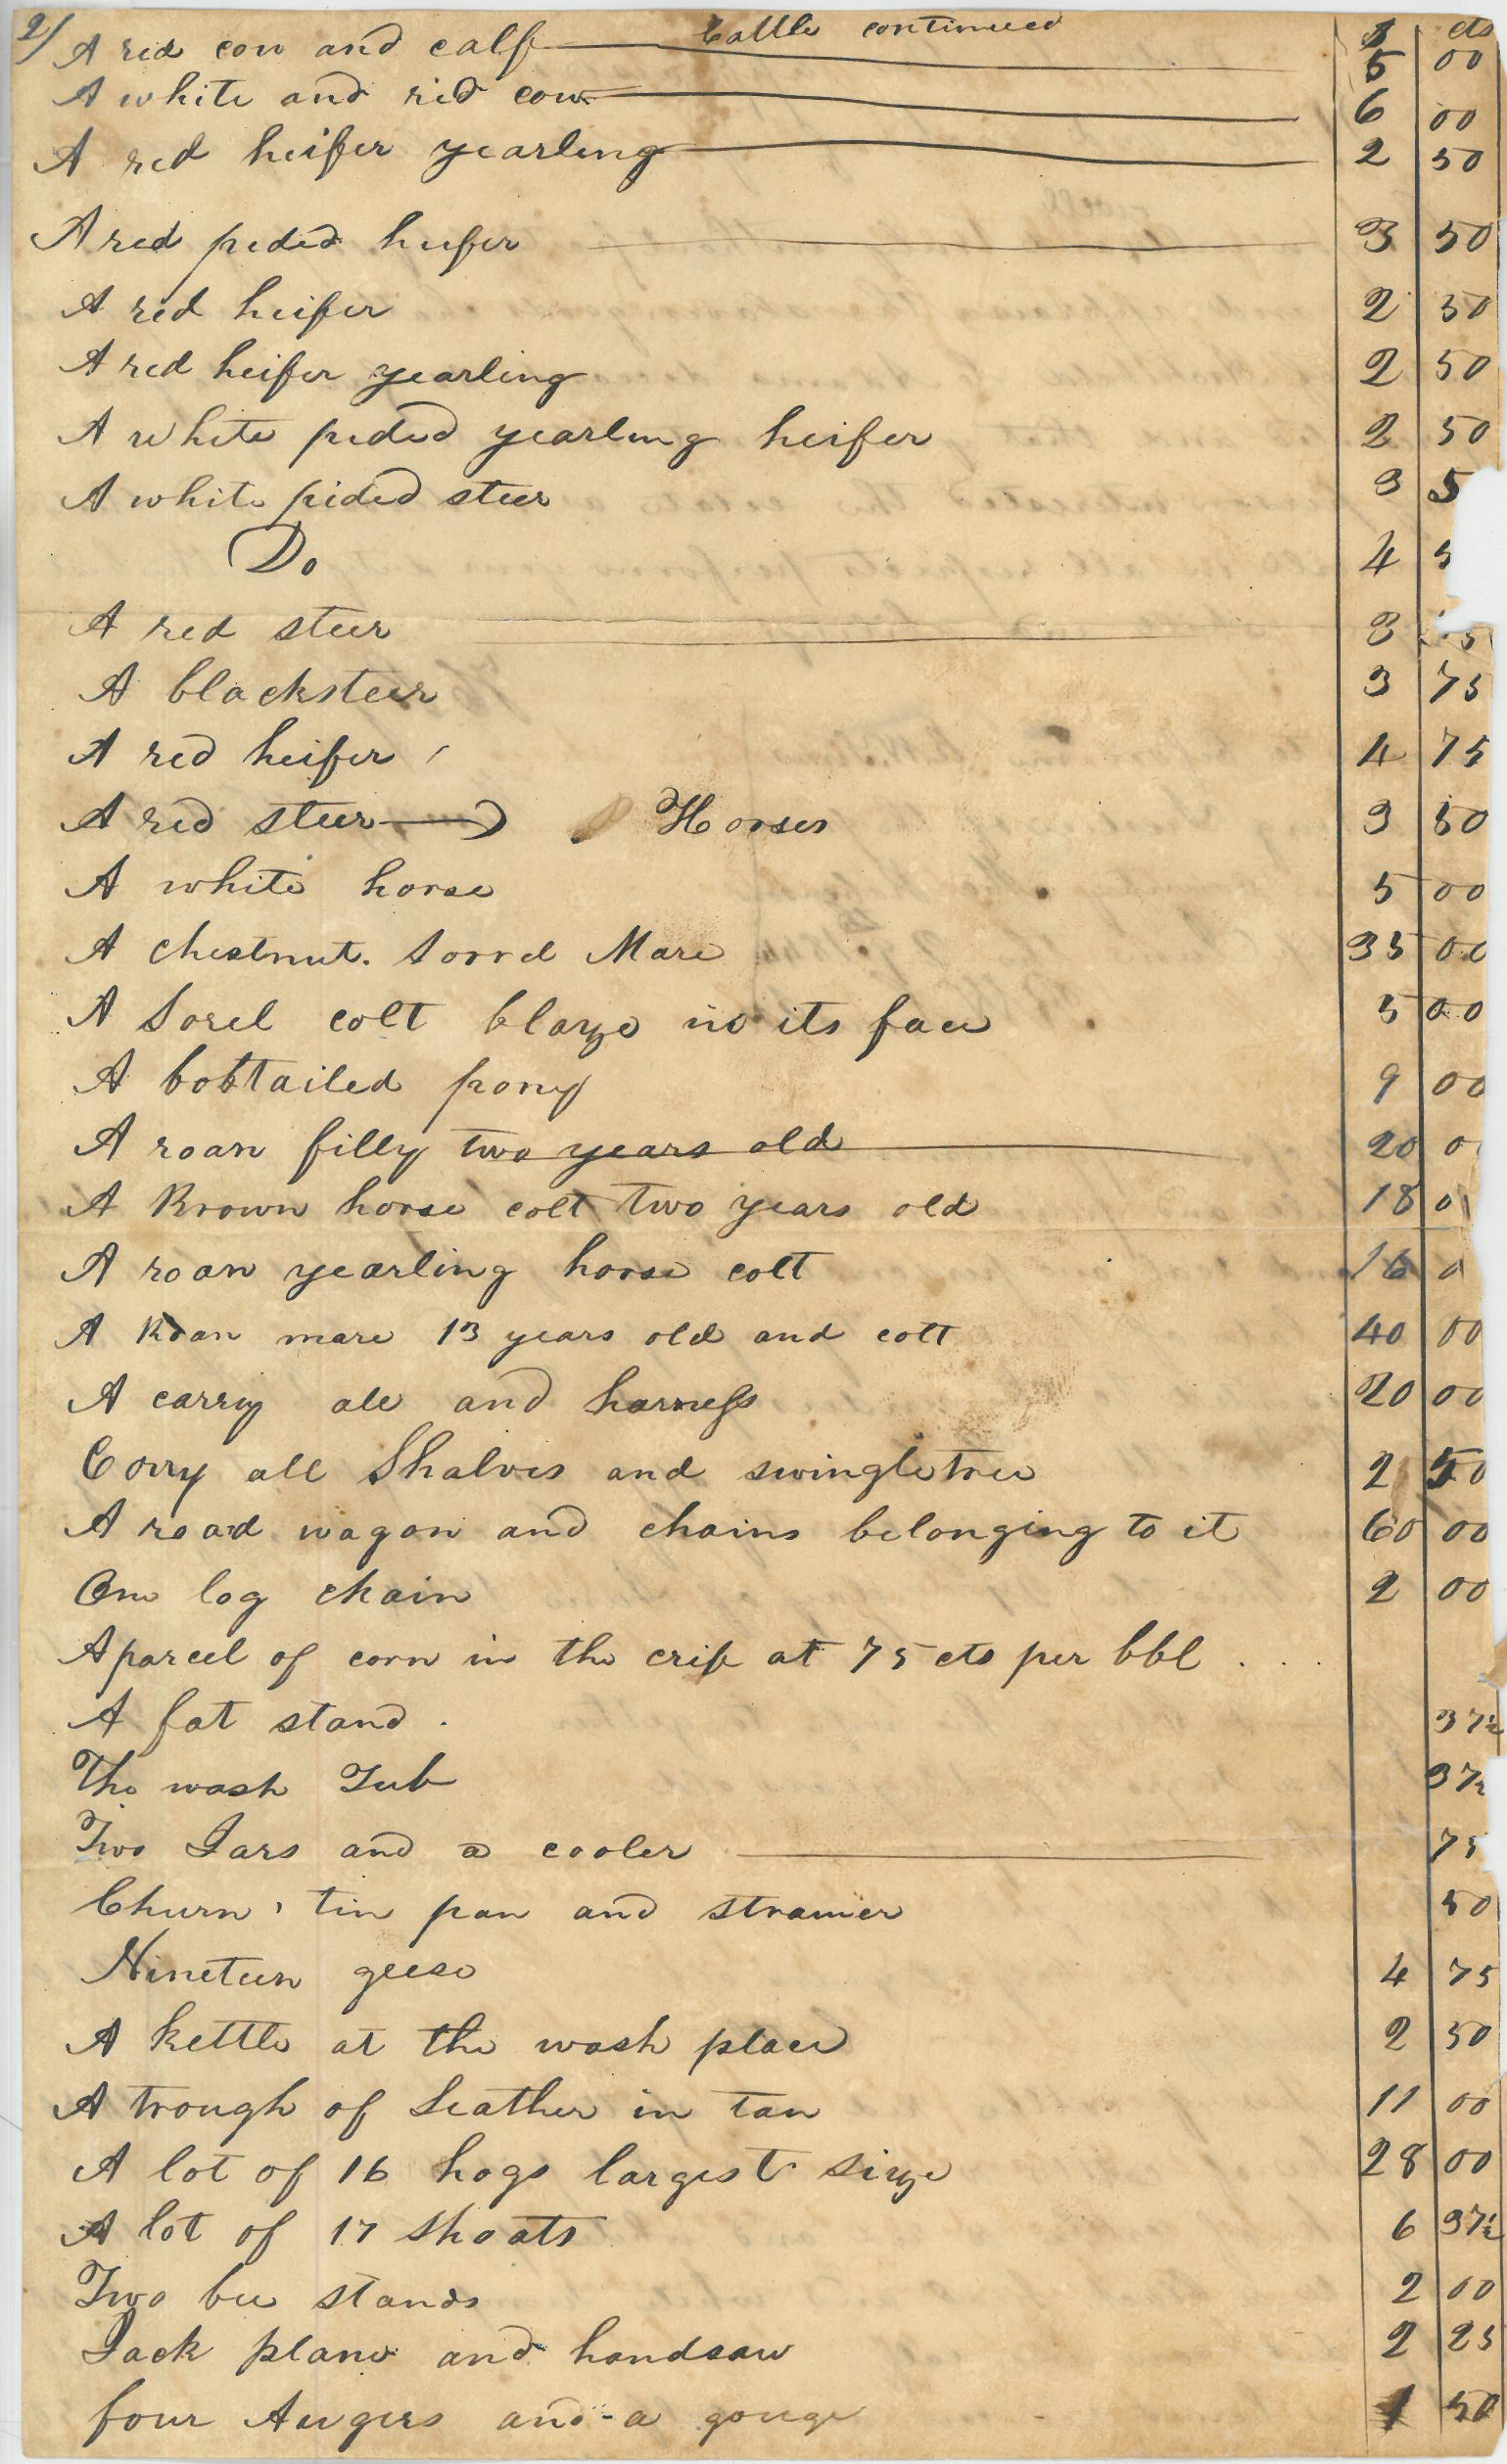 2/ Cattle continued $ cts
A red cow and calf 5 00
A white and red cow 6 00
A red heifer yearling 2 50
A red pided heifer 3 50
A red heifer 2 50
A red heifer yearling 2 50
A white pided yearling heifer 2 50
A white pided steer 3 5
Do 4 5
A red steer 3
A black steer 3 75
A red heifer 4 75
A red steer 3 50
Horses
A white horse 5 00
A chestnut. Sorrel Mare 35 00
A Sorel colt blaze in its face 5 00
A bobtailed pony 9 00
A roan filly two years old 20 0
A Brown horse colt two years old 18 0
A roan yearling horse colt 16 0
A Roan mare 13 years old and colt 40 00
A carry all and harness 20 00
Carry all Shalves and swingletree 2 50
A road wagon and chains belonging to it 60 00
One log chain 2 00
A parcel of corn in the crib at 75 cts per bbl . . .
A fat stand . 37½
The wash Tub 37½
Two Jars and a cooler 75
Churn, tin pan and strainer 50
Nineteen geese 4 75
A kettle at the wash place 2 50
A trough of Leather in tan 11 00
A lot of 16 hogs largest size 28 00
A lot of 17 shoats 6 37½
Two bee stands 2 00
Jack plane and handsaw 2 25
four Augers and a gouge 1 50